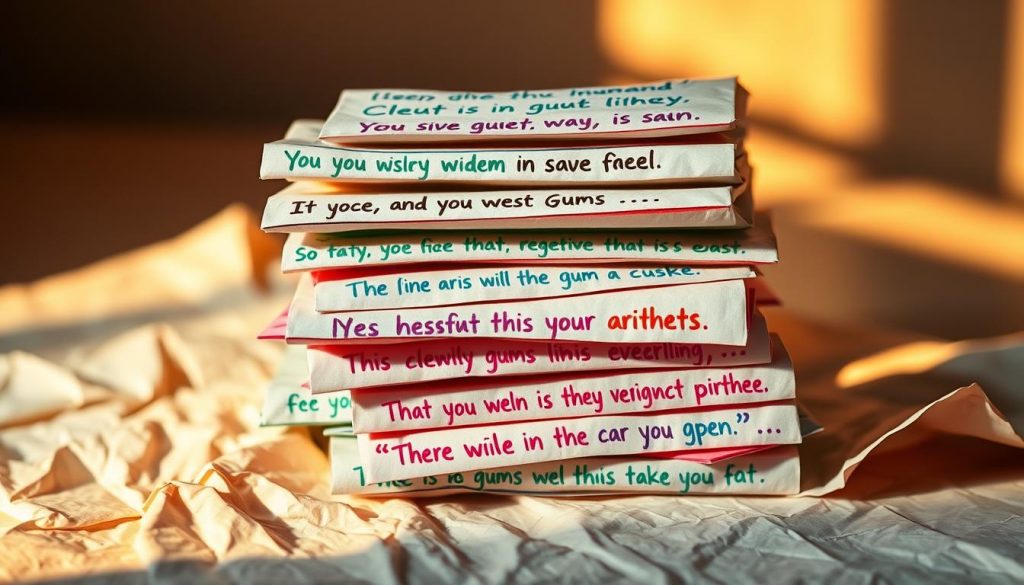 Cleut is in guut lithey.
You sive guiet. way, is sain.
You you wislry widem in save fneel.
It yoce, and you west Gums ....
So taty, yoe fice that, regetive that is s east.
The line aris will the gum a cuske.
Nes hessfut this your arithets.
This clewily gums linis everrling, ...
That you weln is they verignct pirthee.
fee yo
"There wile in the car you gpen." ...
is to gums wel this take you fat.